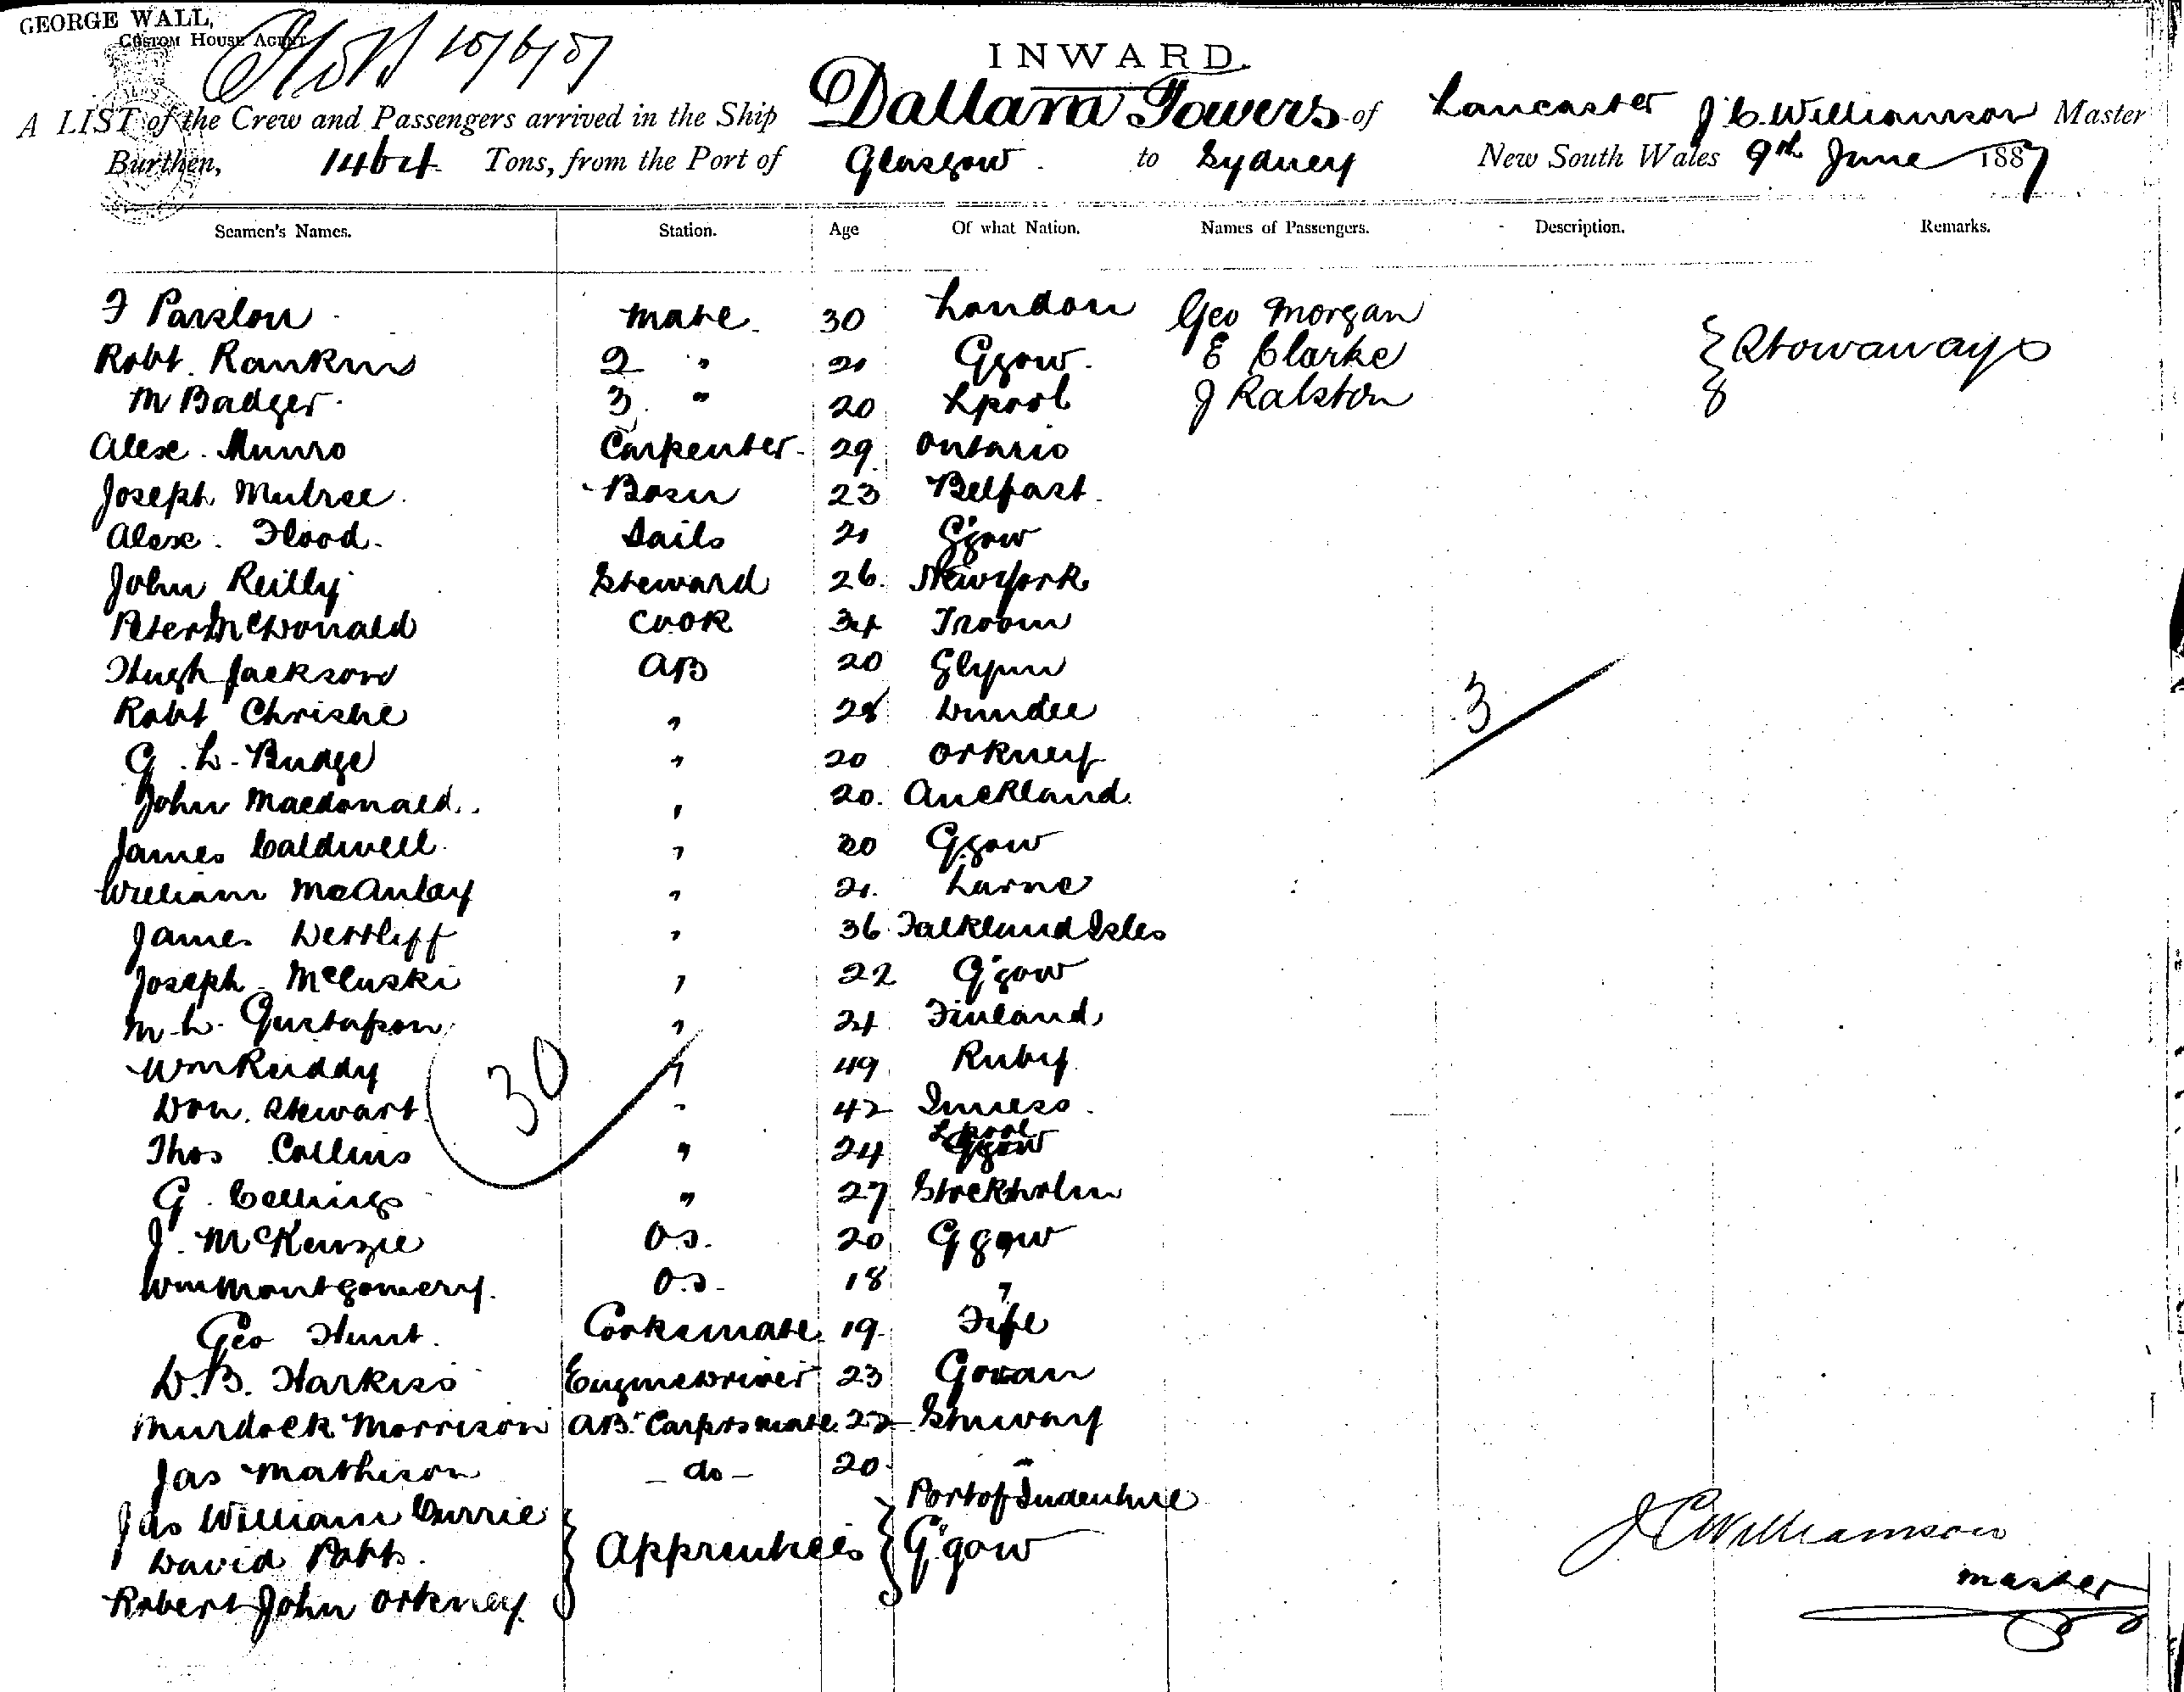 GEORGE WALL,
CUSTOM HOUSE AGENT
INWARD.
A LIST of the Crew and Passengers arrived in the Ship Dallam Towers of Lancaster J. C. Williamson Master
Burthen, 1464 Tons, from the Port of Glasgow to Sydney New South Wales 9th June 1887
Seamen's Names. Station. Age Of what Nation. Names of Passengers. Description. Remarks.
F Parslow mate 30 London Geo Morgan
Robt. Rankin 2 " 21 Ggow. E Clarke Stowaways
M Badger 3 " 20 Lpool J Ralston
Alex. Munro Carpenter 29 Ontario
Joseph Mulree Bosn 23 Belfast
Alex. Flood Sails 21 G'gow
John Reilly Steward 26 New York
Peter McDonald Cook 34 Troon
Hugh Jackson AB 20 Glynn
Robt Christie " 28 Dundee 3
G. L. Budge " 20 Orkney
John Macdonald " 20 Auckland
James Caldwell " 20 Ggow
William McAulay " 21 Larne
James Dettleff " 36 Falkland Isles
Joseph McCluski " 22 G'gow
M. L. Gustafson " 24 Finland
Wm Ruddy 30 " 49
Don. Stewart " 42 Inness
Thos Collins " 24 Lpool
G. Collings " 27 Stockholm
J. McKenzie O.S. 20 Ggow
Wm Montgomery O.S. 18 "
Geo Hunt Cooks mate 19 Fife
D. B. Harkiss Engine Driver 23 Govan
Murdock Morrison AB. Carptrs mate 22
Jas Mathison - do - 20 "
Jas William Currie Port of Indenture
David Potts Apprentices G'gow
Robert John Orkney
J C Williamson
master